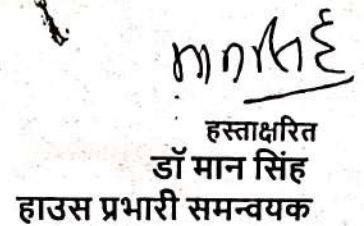 मानसिंह
हस्ताक्षरित
डॉ मान सिंह
हाउस प्रभारी समन्वयक